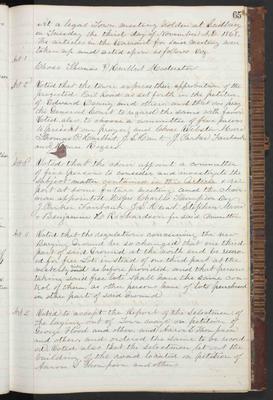 65
At a legal Town meeting holden at Sudbury
on Tuesday the third day of November A.D. 1868.
the articles in the Warrant for said meeting were
taken up and acted upon as follows viz
Art 1
Chose Thomas P. Hurlbut Moderator
Art 2 Voted that the town express their approbation of the
projected Rail Road as set forth in the petition
of Edward and others and that we pray
the General Court to grant the same with favor
Voted also to choose a committee of five persons
to present our prayer, and chose
Thomas P. Hurlbut J. S. Hunt J. Parker Fairbank
and Homer Rogers
Voted that the chair appoint a committee
of four persons to consider and investigate the
subject matter contained in this article & re-
port at some future meeting and the chair
man appointed Major Ephraim Thompson
J. Parker Fairbank Stephen Moore
& Benjamin H. Richardson for said Committee
Voted that the regulations concerning the new
Burying Ground be so changed that one third
part of said Ground at the north end be reser
ved for free Lots instead of one third part at the
westerly end as before provided, and that persons
taking said free Lots shall have the same con
trol of them as other persons have of lots purchased
in other part of said Ground
Voted to accept the Report of the Selectmen of
the laying out of Town ways on petition of
George Hood and others and Aaron S Thompson
and others and ordered the same to be record
ed. Voted also that the Selectmen let out the
building of the road located on petition of
Aaron S Thompson and others